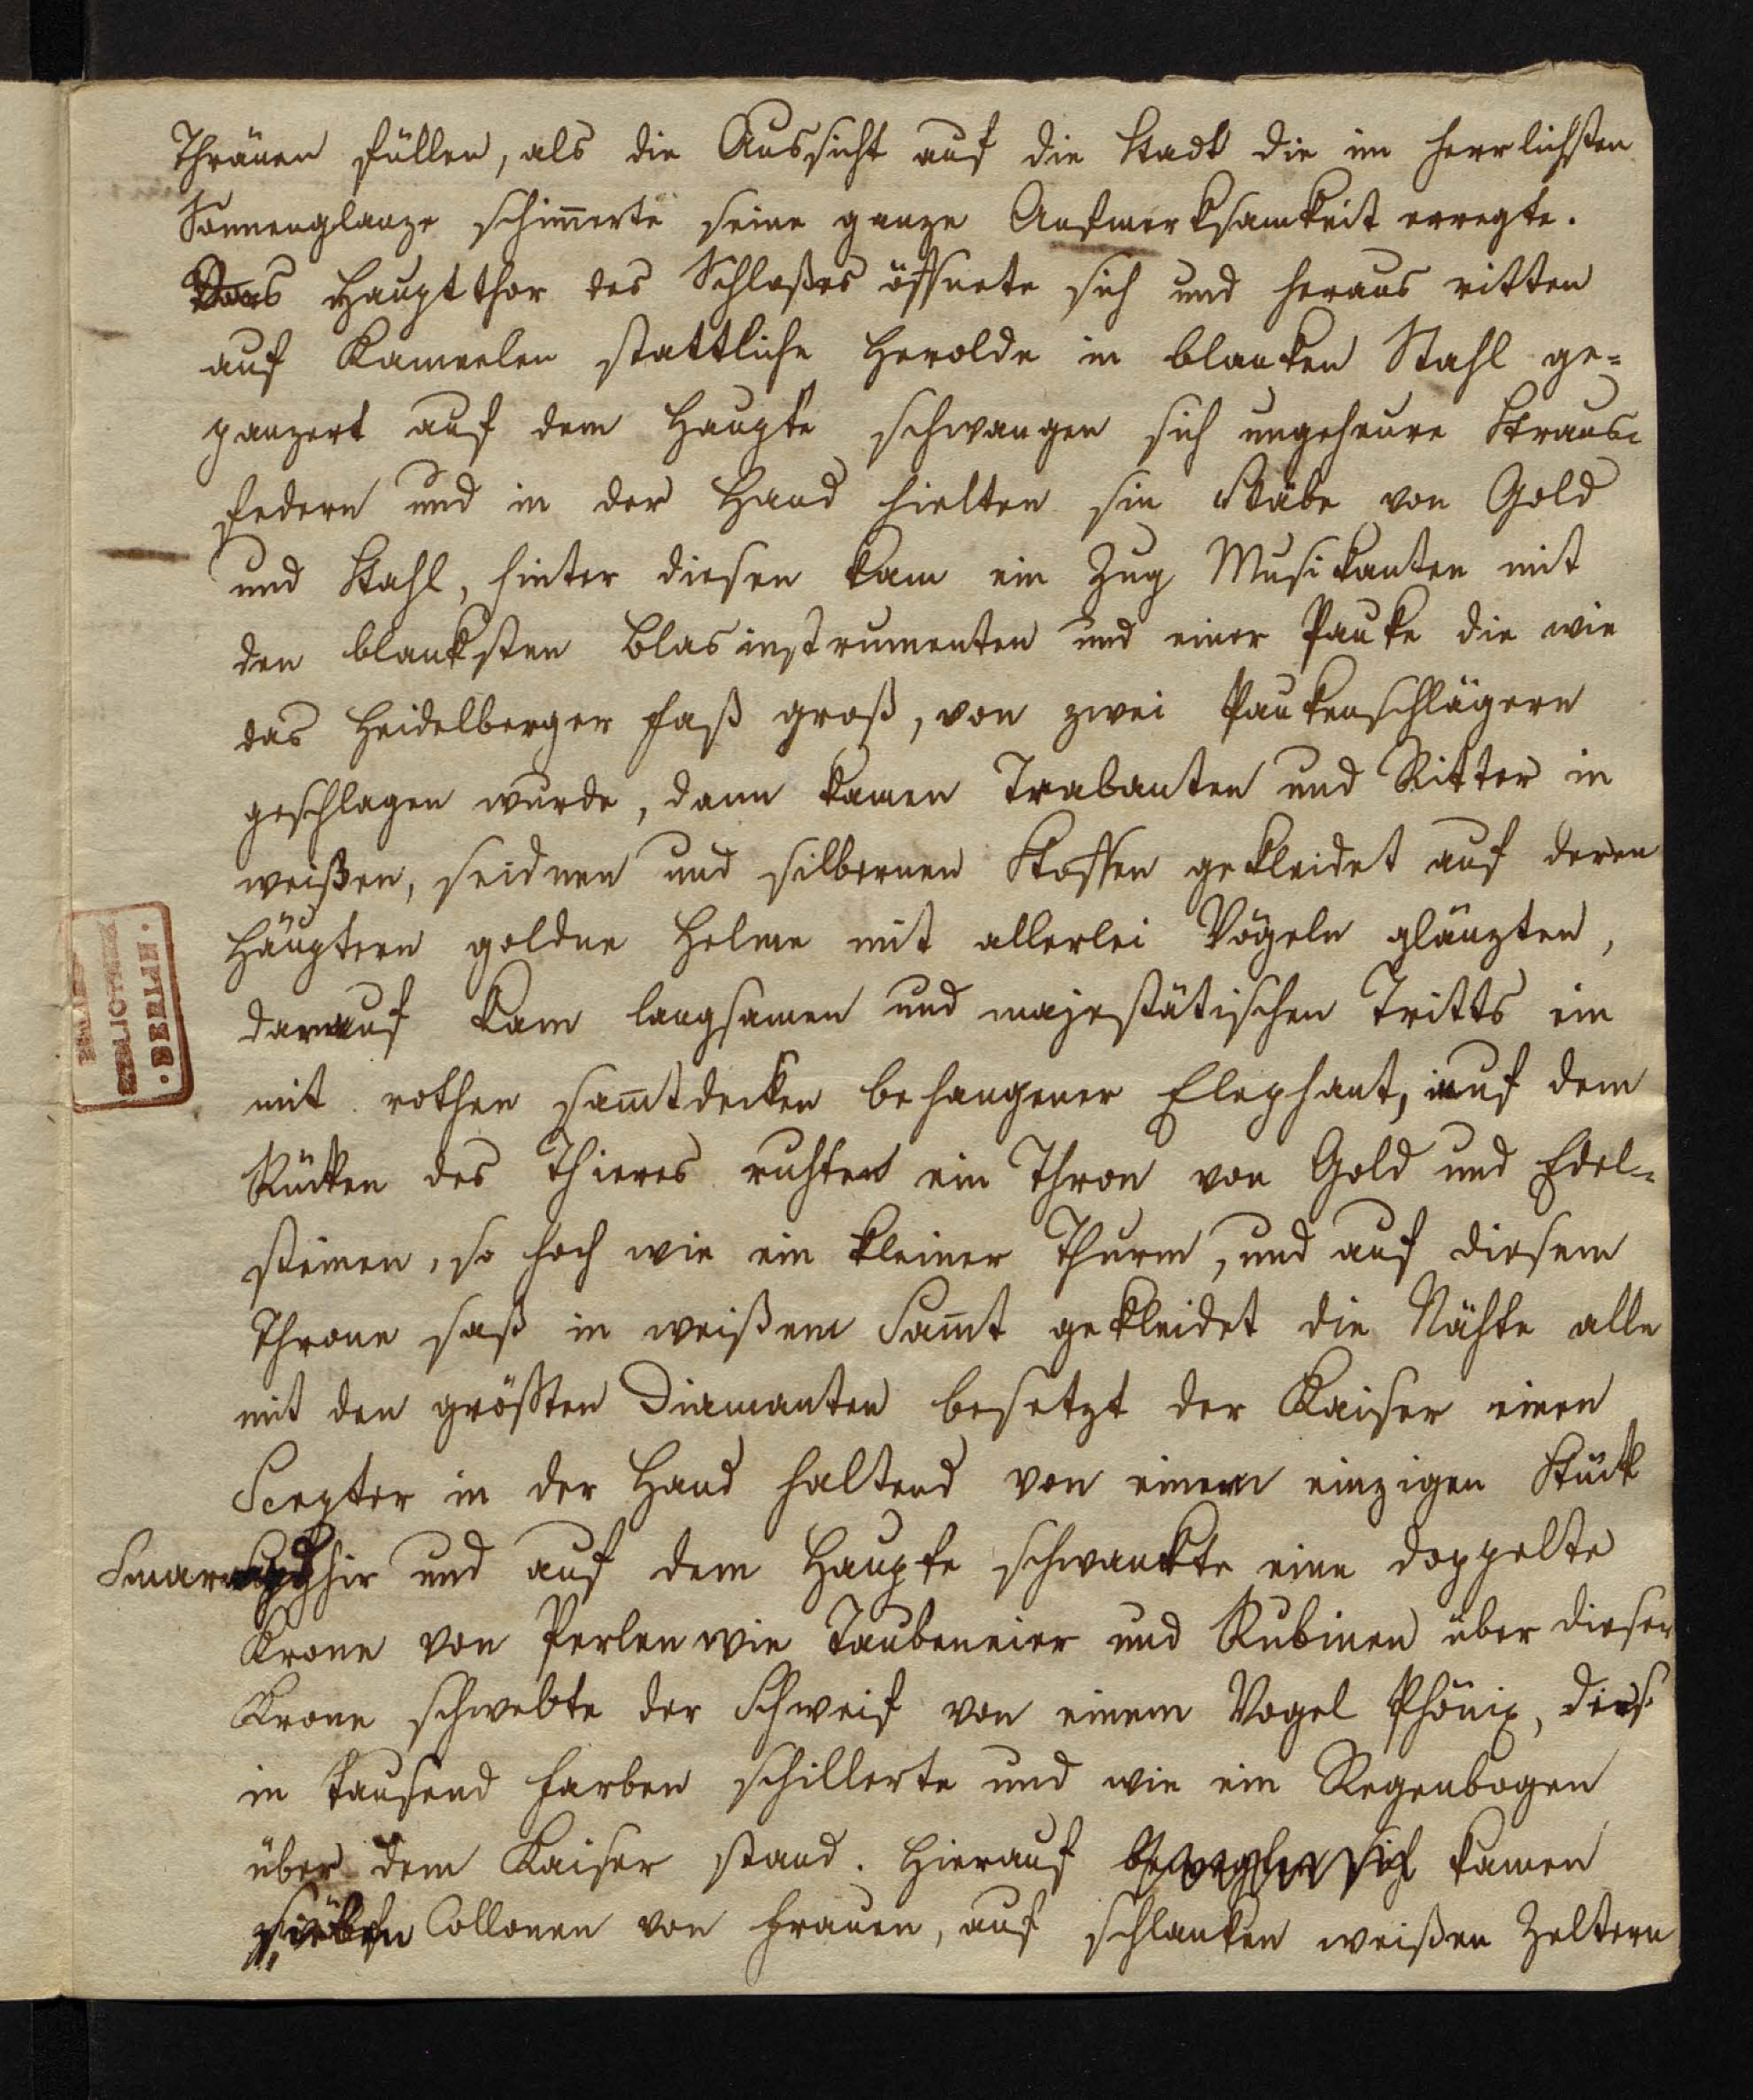 Thränen füllen, als die Aussicht auf die Stadt die im herrlichsten
Sonnenglanze schim̄erte seine ganze Aufmerksamkeit erregte.
Das Hauptthor des Schloßes öffnete sich und heraus ritten
auf Kameelen stattliche Herolde in blanken Stahl ge=
panzert auf dem Haupte schwangen sich ungeheure Straus=
federn und in der Hand hielten sie Stäbe von Gold
und Stahl, hinter diesen kam ein Zug Musikanten mit
den blanksten Blasinstrumenten und einer Pauke die wie
das Heidelberger Faß groß, von zwei Paukenschlägern
geschlagen wurde, dann kamen Trabanten und Ritter in
weißen, seidnen und silbernen Stoffen gekleidet auf deren
Häuptern goldne Helme mit allerlei Vögeln glänzten,
darauf kam langsamen und majestätischen Tritts ein
mit rothen sam̄tdecken behangener Elephant, auf dem
Rücken des Thieres ruhte ein Thron von Gold und Edel=
steinen, so hoch wie ein kleiner Thurm, und auf diesem
Throne saß in weißem Sam̄t gekleidet die Nähte alle
mit den größten Diamanten besetzt der Kaiser einen
Scepter in der Hand haltend von einem einzigen Stück
Smaragd und auf dem Haupte schwankte eine doppelte
Krone von Perlen wie Taubeneier und Rubinen über dieser
Krone schwebte der Schweif von einem Vogel Phönix, der
in tausend Farben schillerte und wie ein Regenbogen
über dem Kaiser stand. Hierauf bewegten sich kamen
Collonen von Frauen, auf schlanken weißen Zeltern
BIBLIOTHEK
BERLIN